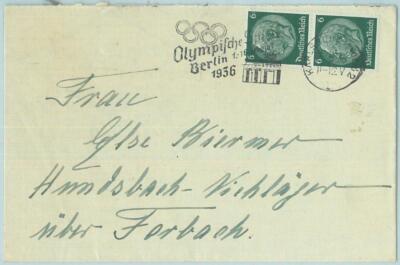 6 Deutsches Reich 6 Deutsches Reich
Olympische
Berlin 1.-16
1936
11-12V
Frau
Else Biermer
Hundsbach-Viehläger
über Forbach.